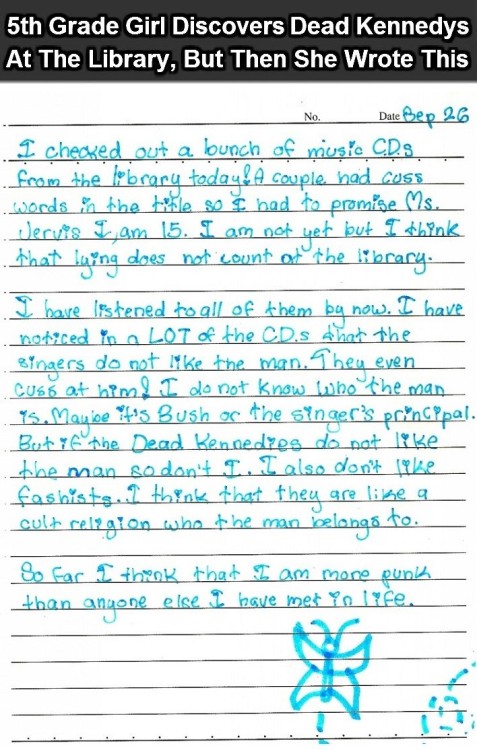 5th Grade Girl Discovers Dead Kennedys
At The Library, But Then She Wrote This
No. Date Sep 26
I checked out a bunch of music C.D.s
from the library today! A couple had cuss
words in the title so I had to promise Ms.
Jervis I am 15. I am not yet but I think
that lying does not count at the library.
I have listened to all of them by now. I have
noticed in a LOT of the CD.s that the
singers do not like the man. They even
cuss at him! I do not know who the man
is. Maybe it's Bush or the singer's principal.
But if the Dead Kennedies do not like
the man so don't I. I also don't like
fashists. I think that they are like a
cult religion who the man belongs to.
So far I think that I am more punk
than anyone else I have met in life.